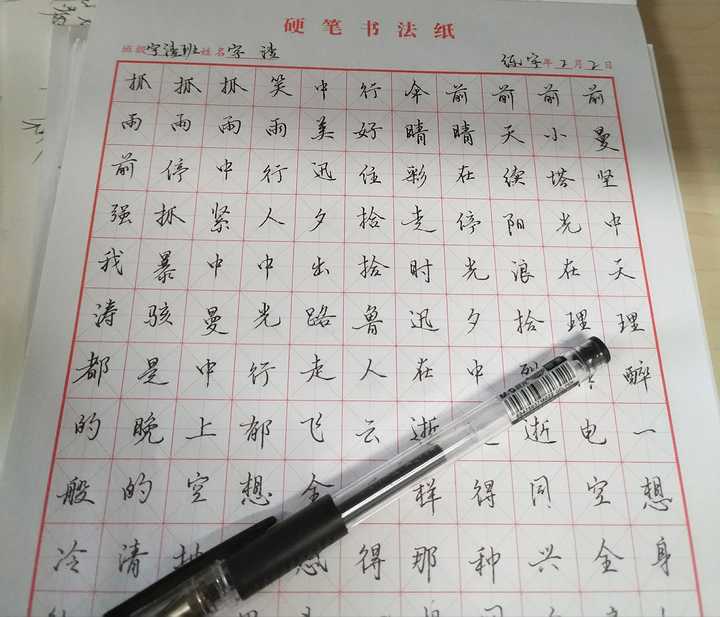 硬笔书法纸
班级 字渣班 姓名 字渣 练字年2月2日
抓抓抓笑中行奔前前前前
雨雨雨雨美好晴晴天小曼
前停中行迅住彩在缤塔坚
强抓紧人夕拾走停阳光中
我暴中中出拾时光浪在天
涛骇曼光路鲁迅夕拾理理
都是中行走人在中醉
的晚上郁飞云逝逝电一
般的空想全样得同空想
冷清抽得那种兴全身